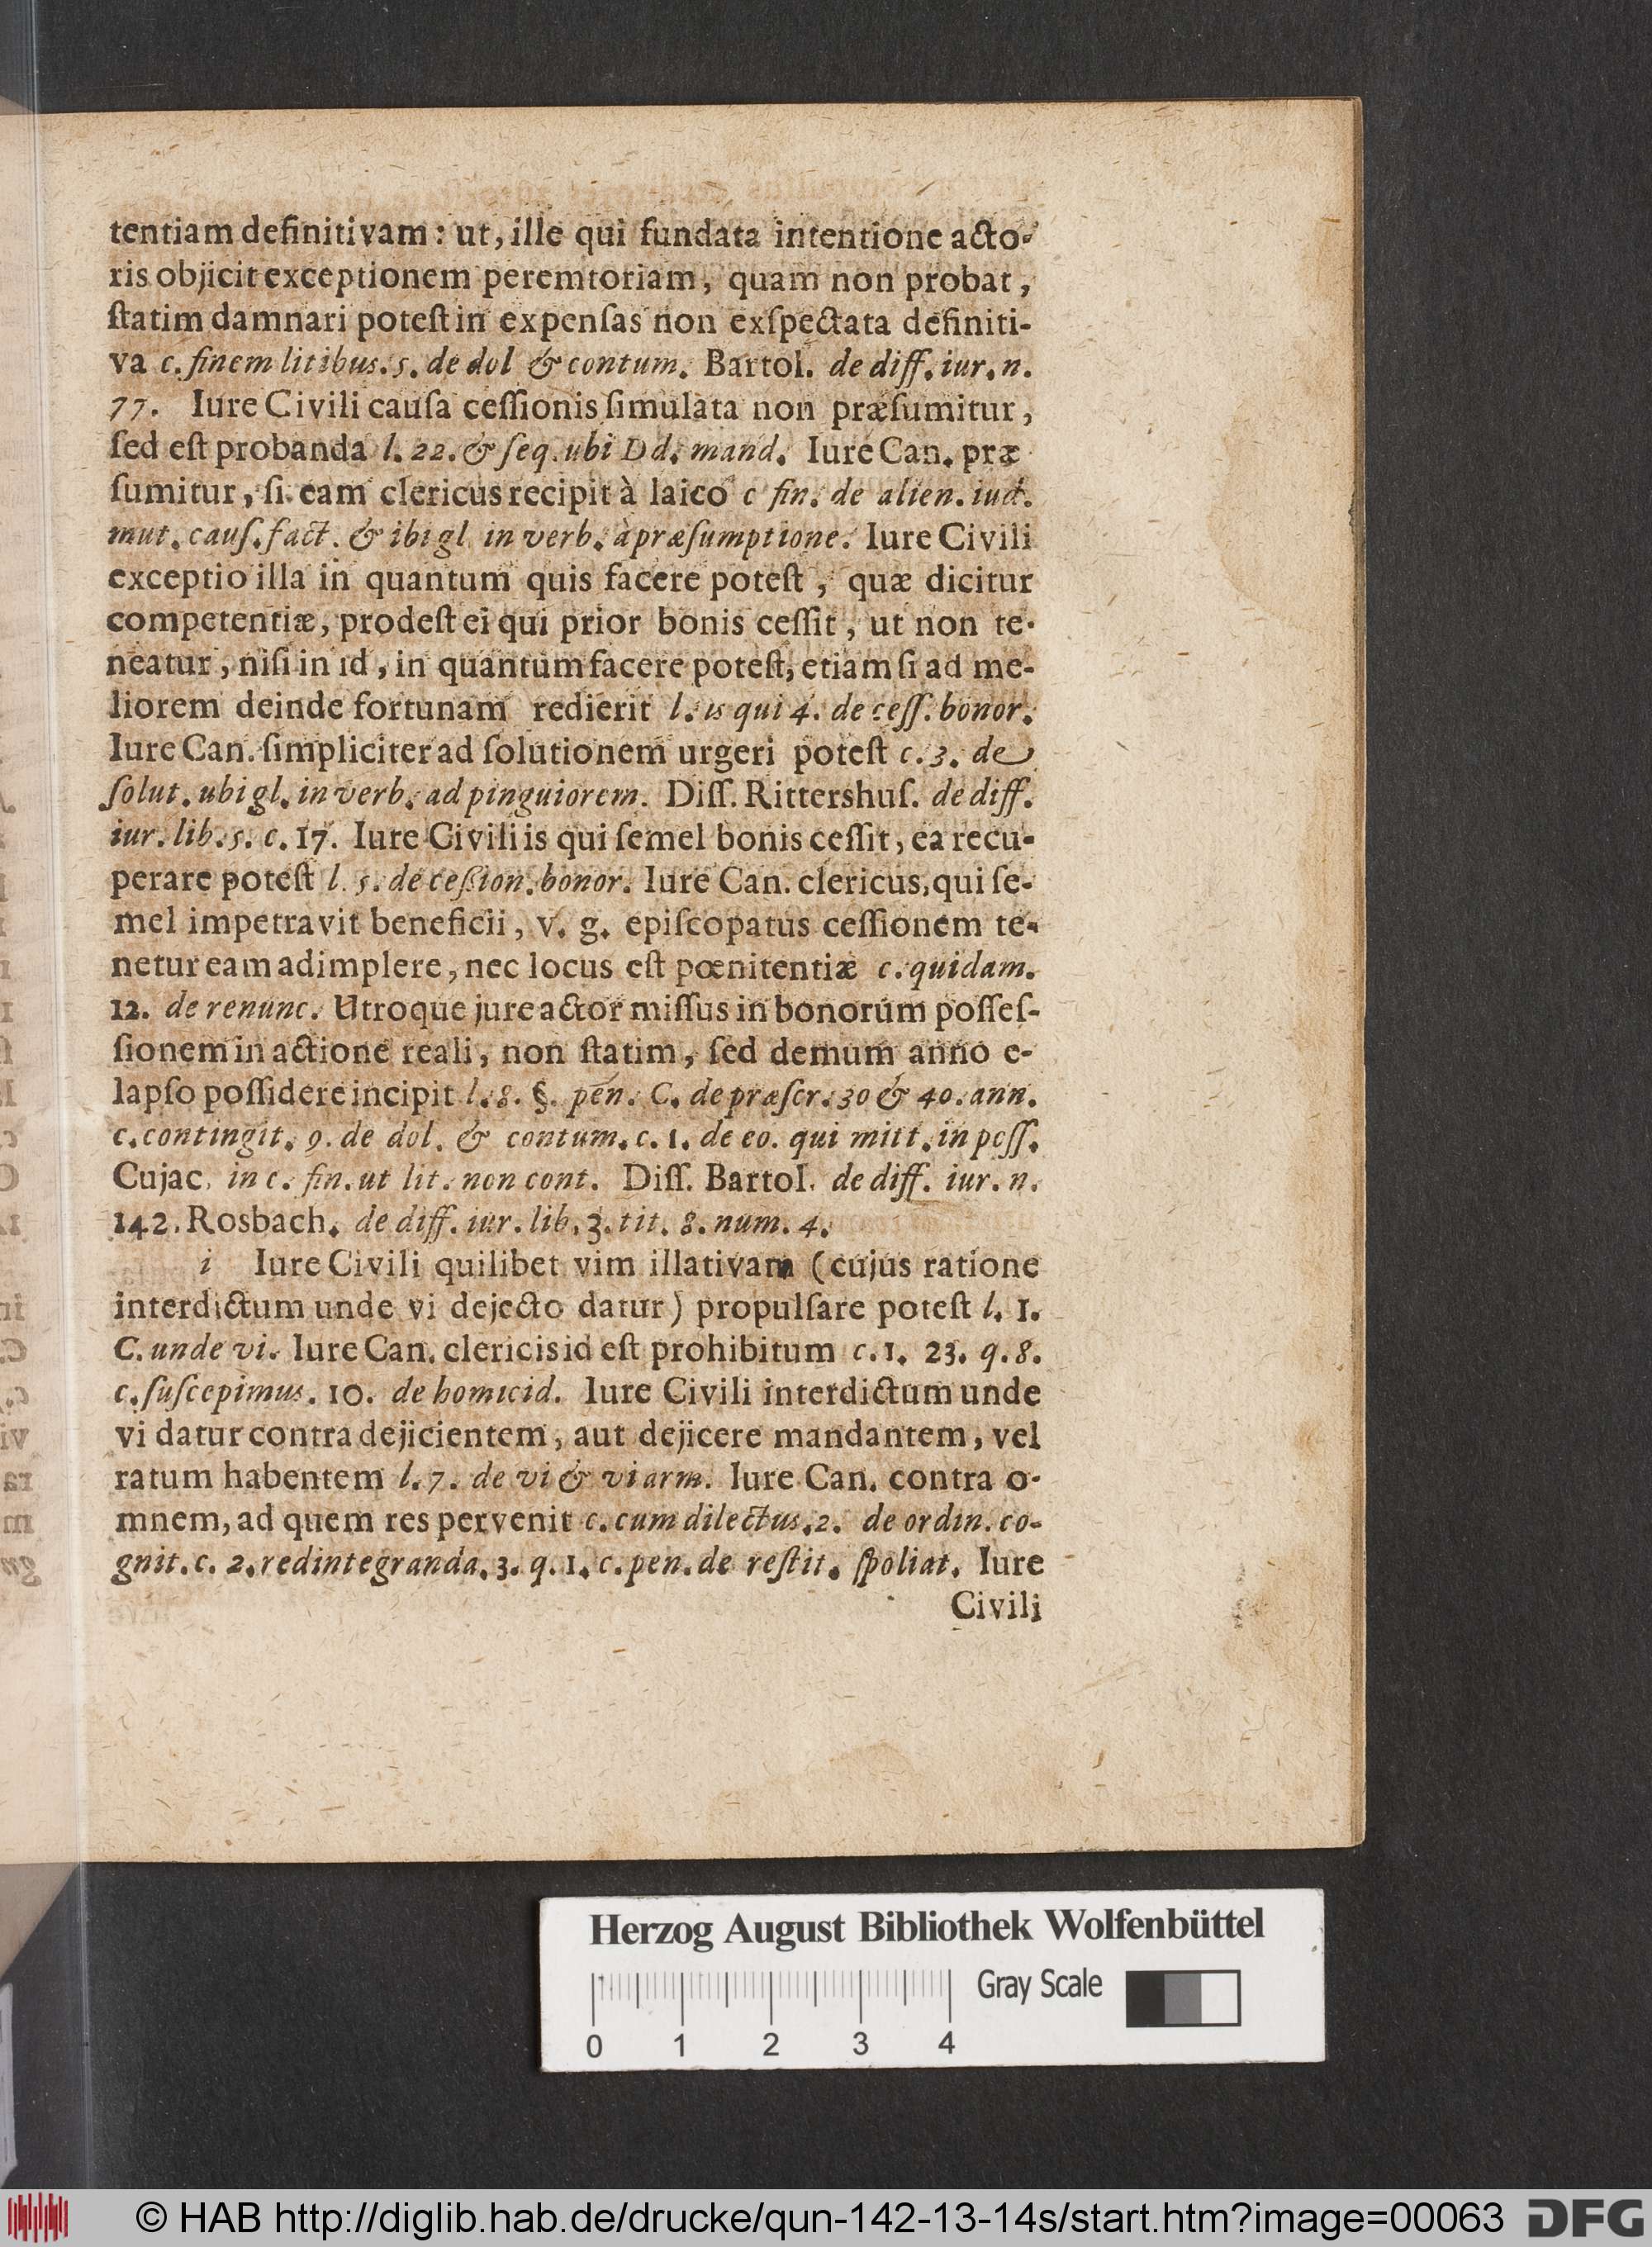 tentiam definitivam: ut, ille qui fundata intentione acto-
ris objicit exceptionem peremtoriam, quam non probat,
ſtatim damnari poteſt in expenſas non exſpectata definiti-
va c. finem litibus. 5. de dol & contum. Bartol. de diff. iur. n.
77. Iure Civili cauſa ceſſionis ſimulata non præſumitur,
ſed eſt probanda l. 22. & ſeq. ubi Dd. mand. Iure Can. præ
ſumitur, ſi eam clericus recipit à laico c fin. de alien. iud.
mut. cauſ. fact. & ibi gl in verb. à præſumptione. Iure Civili
exceptio illa in quantum quis facere poteſt, quæ dicitur
competentiæ, prodeſt ei qui prior bonis ceſſit, ut non te-
neatur, niſi in id, in quantum facere poteſt, etiam ſi ad me-
liorem deinde fortunam redierit l. is qui 4. de ceſſ. bonor.
Iure Can. ſimpliciter ad ſolutionem urgeri poteſt c. 3. de
ſolut. ubi gl. in verb. ad pinguiorem. Diſſ. Rittershuſ. de diff.
iur. lib. 5. c. 17. Iure Civili is qui ſemel bonis ceſſit, ea recu-
perare poteſt l. 5. de ceßion. bonor. Iure Can. clericus, qui ſe-
mel impetravit beneficii, v. g. epiſcopatus ceſſionem te-
netur eam adimplere, nec locus eſt pœnitentiæ c. quidam.
12. de renunc. Utroque jure actor miſſus in bonorum poſſeſ-
ſionem in actione reali, non ſtatim, ſed demum anno e-
lapſo poſſidere incipit l. 8. §. pen. C. de præſcr. 30 & 40. ann.
c. contingit. 9. de dol. & contum. c. 1. de eo. qui mitt. in poſſ.
Cujac. in c. fin. ut lit. non cont. Diſſ. Bartol. de diff. iur. n.
142. Rosbach. de diff. iur. lib. 3. tit. 8. num. 4.
i Iure Civili quilibet vim illativam (cujus ratione
interdictum unde vi dejecto datur) propulſare poteſt l. 1.
C. unde vi. Iure Can. clericis id eſt prohibitum c. 1. 23. q. 8.
c. ſuſcepimus. 10. de homicid. Iure Civili interdictum unde
vi datur contra dejicientem, aut dejicere mandantem, vel
ratum habentem l. 7. de vi & vi arm. Iure Can. contra o-
mnem, ad quem res pervenit c. cum dilectus. 2. de ordin. co-
gnit. c. 2. redintegranda. 3. q. 1. c. pen. de reſtit. ſpoliat. Iure
Civili
Herzog August Bibliothek Wolfenbüttel
Gray Scale
0 1 2 3 4
© HAB http://diglib.hab.de/drucke/qun-142-13-14s/start.htm?image=00063
DFG